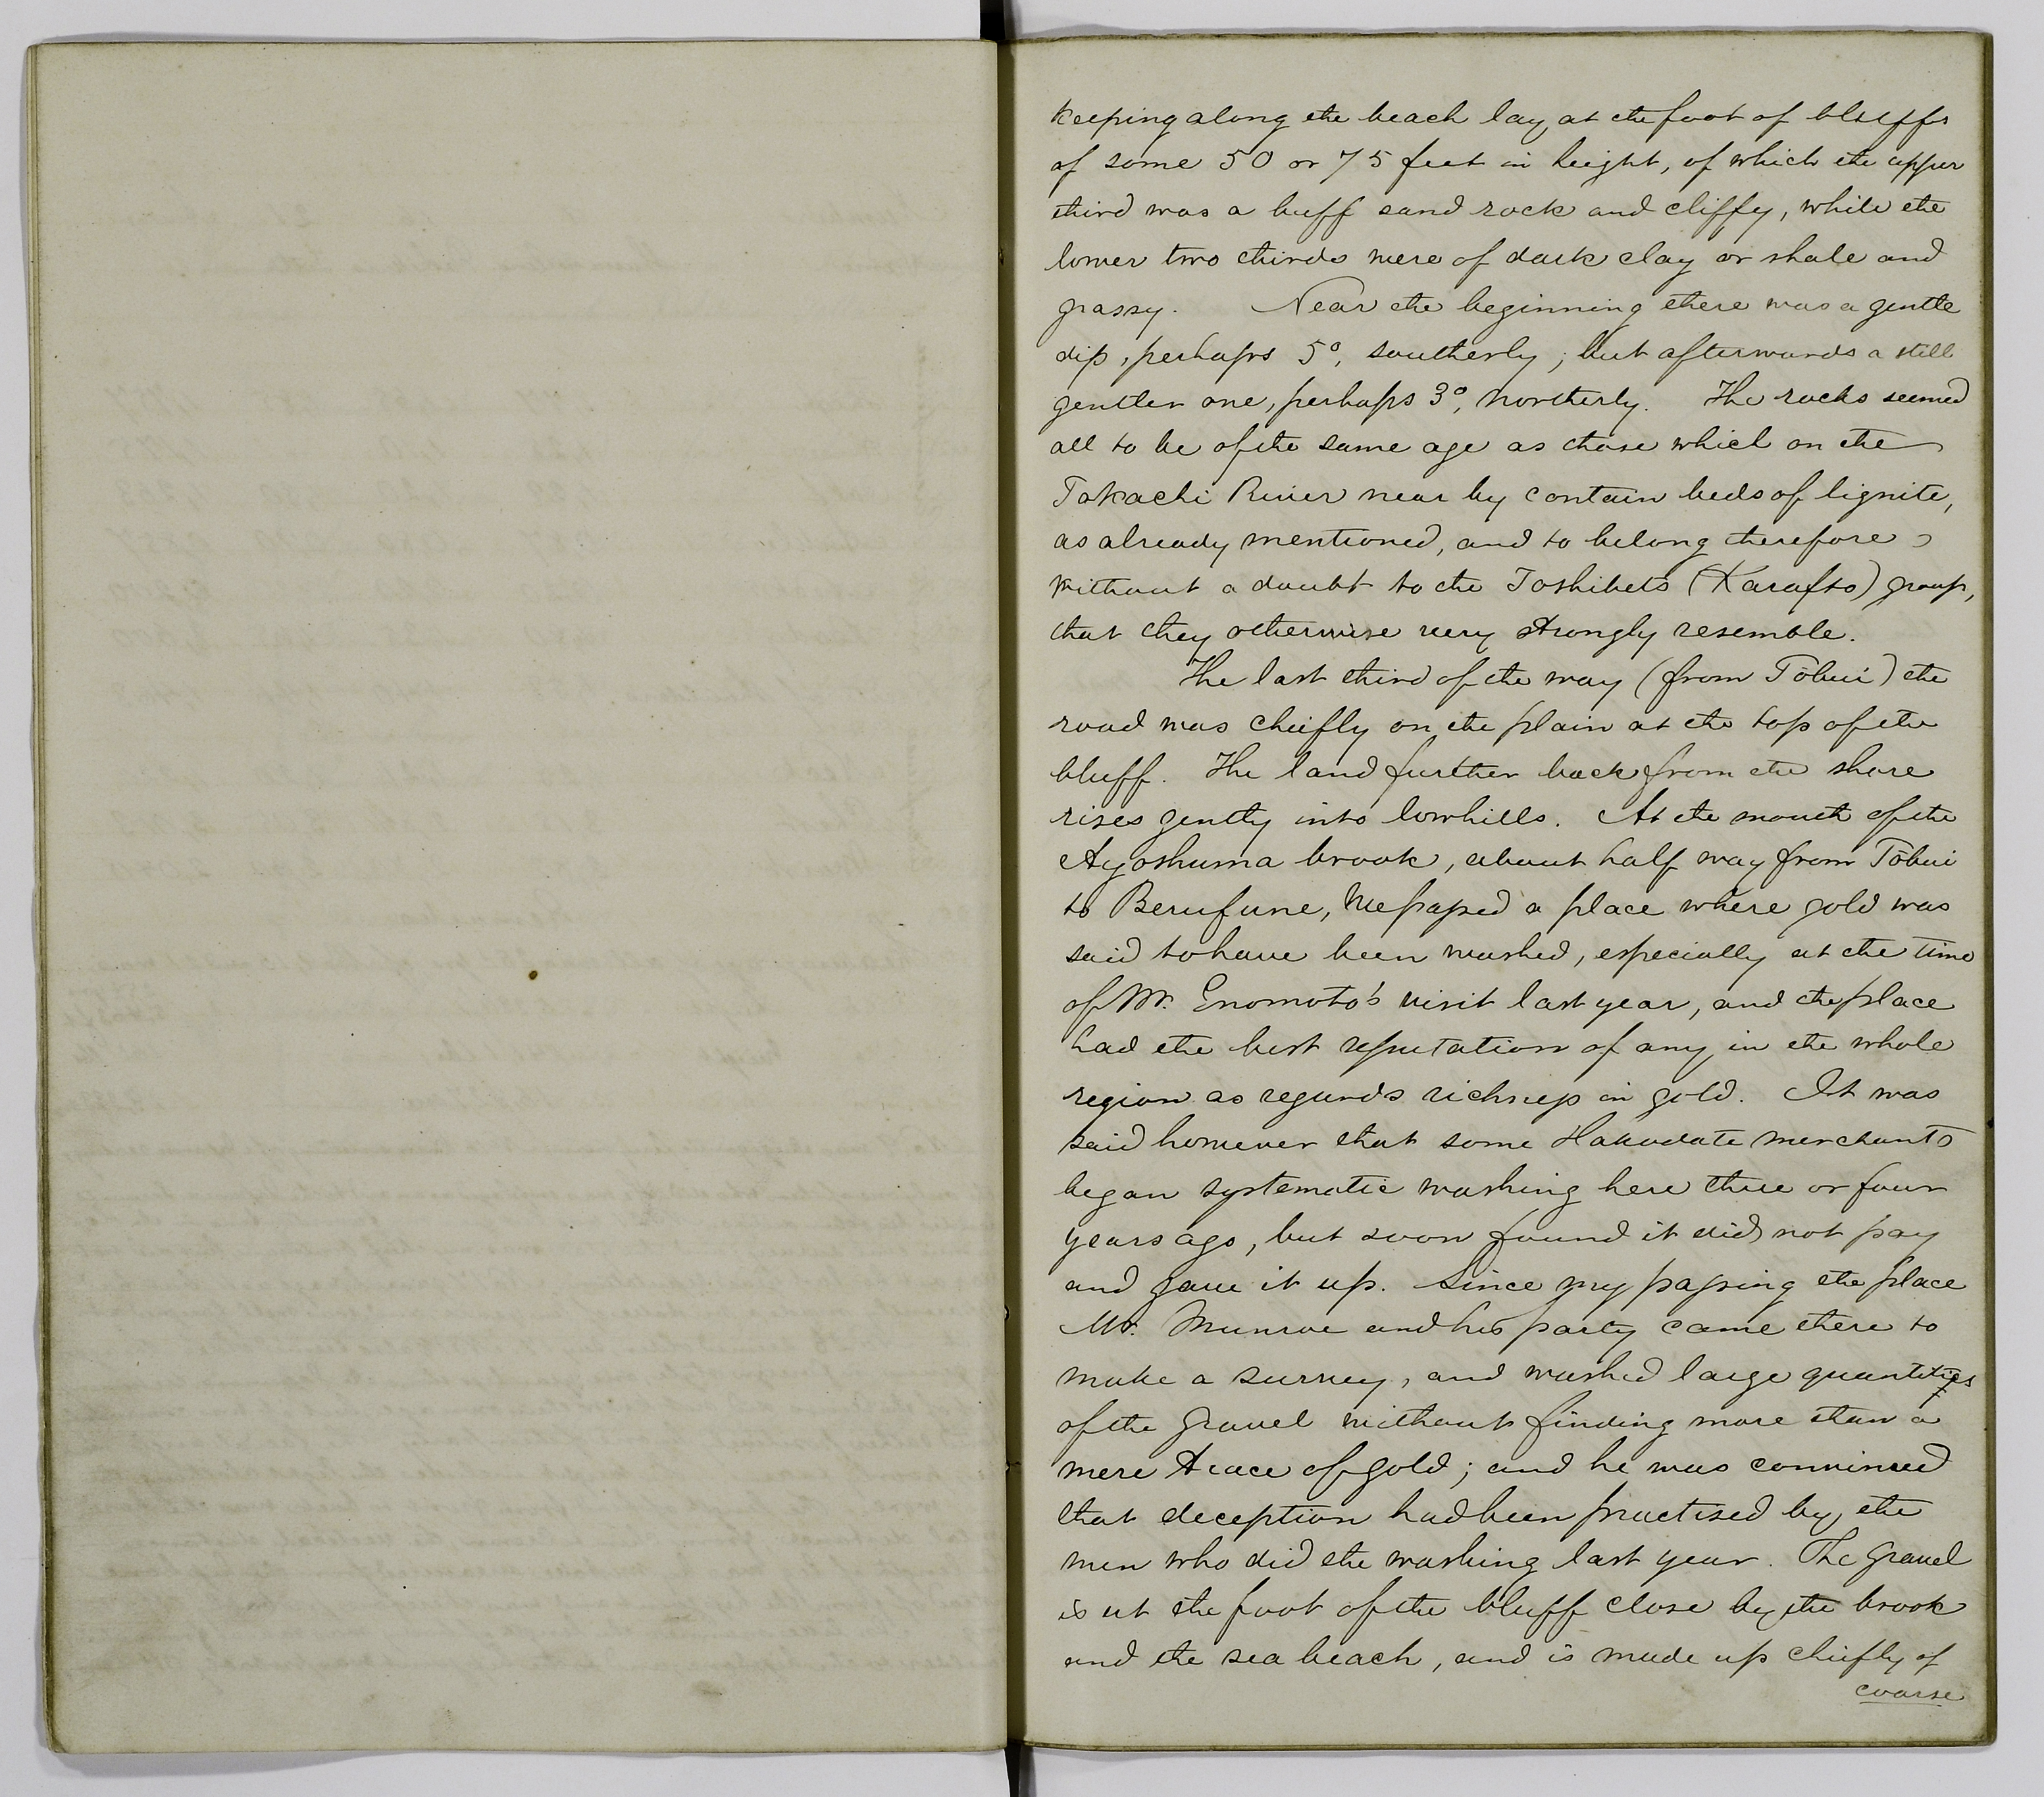 keeping along the beach lay at the foot of bluffs
of some 50 or 75 feet in height, of which the upper
third was a buff sand rock and cliffy, while the
lower two thirds were of dark clay or shale and
grassy. Near the beginning there was a gentle
dip, perhaps 5°, southerly; but afterwards a still
gentler one, perhaps 3°, northerly. The rocks seemed
all to be of the same age as those which on the
Tokachi River near by contain beds of lignite,
as already mentioned, and to belong therefore
without a doubt to the Toshibets (Karafto) group,
that they otherwise very strongly resemble.
The last third of the way (from Tōbui) the
road was chiefly on the plain at the top of the
bluff. The land further back from the shore
rises gently into low hills. At the mouth of the
Ayoshuma brook, about half way from Tōbui
to Berufune, we passed a place where gold was
said to have been washed, especially at the time
of Mr. Enomoto's visit last year, and the place
had the best reputation of any in the whole
region as regards richness in gold. It was
said however that some Hakodate merchants
began systematic washing here three or four
years ago, but soon found it did not pay
and gave it up. Since my passing the place
Mr. Munroe and his party came there to
make a survey, and washed large quantities
of the gravel without finding more than a
mere trace of gold; and he was convinced
that deception had been practised by the
men who did the washing last year. The gravel
is at the foot of the bluff close by the brook
and the sea beach, and is made up chiefly of
coarse